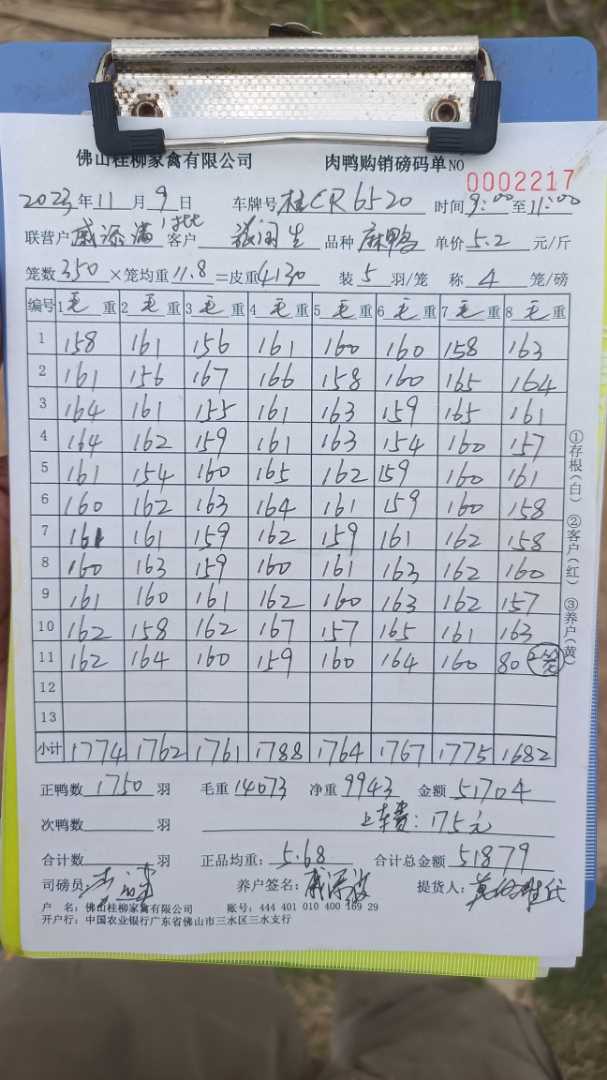 佛山桂柳家禽有限公司 肉鸭购销磅码单 NO 0002217
2023年11月9日 车牌号 桂CR6520 时间9:00至11:00
联营户 客户 品种 麻鸭 单价5.2元/斤
笼数350×笼均重11.8=皮重4130 装5羽/笼 称4笼/磅
编号 1毛重 2毛重 3毛重 4毛重 5毛重 6毛重 7毛重 8毛重
1 158 161 156 161 160 160 158 163
2 161 156 167 166 158 160 165 164
3 164 161 155 161 163 159 165 161
4 164 162 159 161 163 154 160 157
5 161 154 160 165 162 159 160 161
6 160 162 163 164 161 159 160 158
7 161 161 159 162 159 161 162 158
8 160 163 159 160 161 163 162 160
9 161 160 161 162 160 163 162 157
10 162 158 162 167 157 165 161 163
11 162 164 160 159 160 164 160 80 2笼
12
13
小计 1774 1762 1761 1788 1764 1767 1775 1682
①存根(白) ②客户(红) ③养户(黄)
正鸭数1750羽 毛重14073 净重9943 金额51704
次鸭数 羽 上车费:175元
合计数 羽 正品均重:5.68 合计总金额51879
司磅员: 养户签名: 提货人:
户 名:佛山桂柳家禽有限公司 账号:444 401 010 400 169 29
开户行:中国农业银行广东省佛山市三水区三水支行